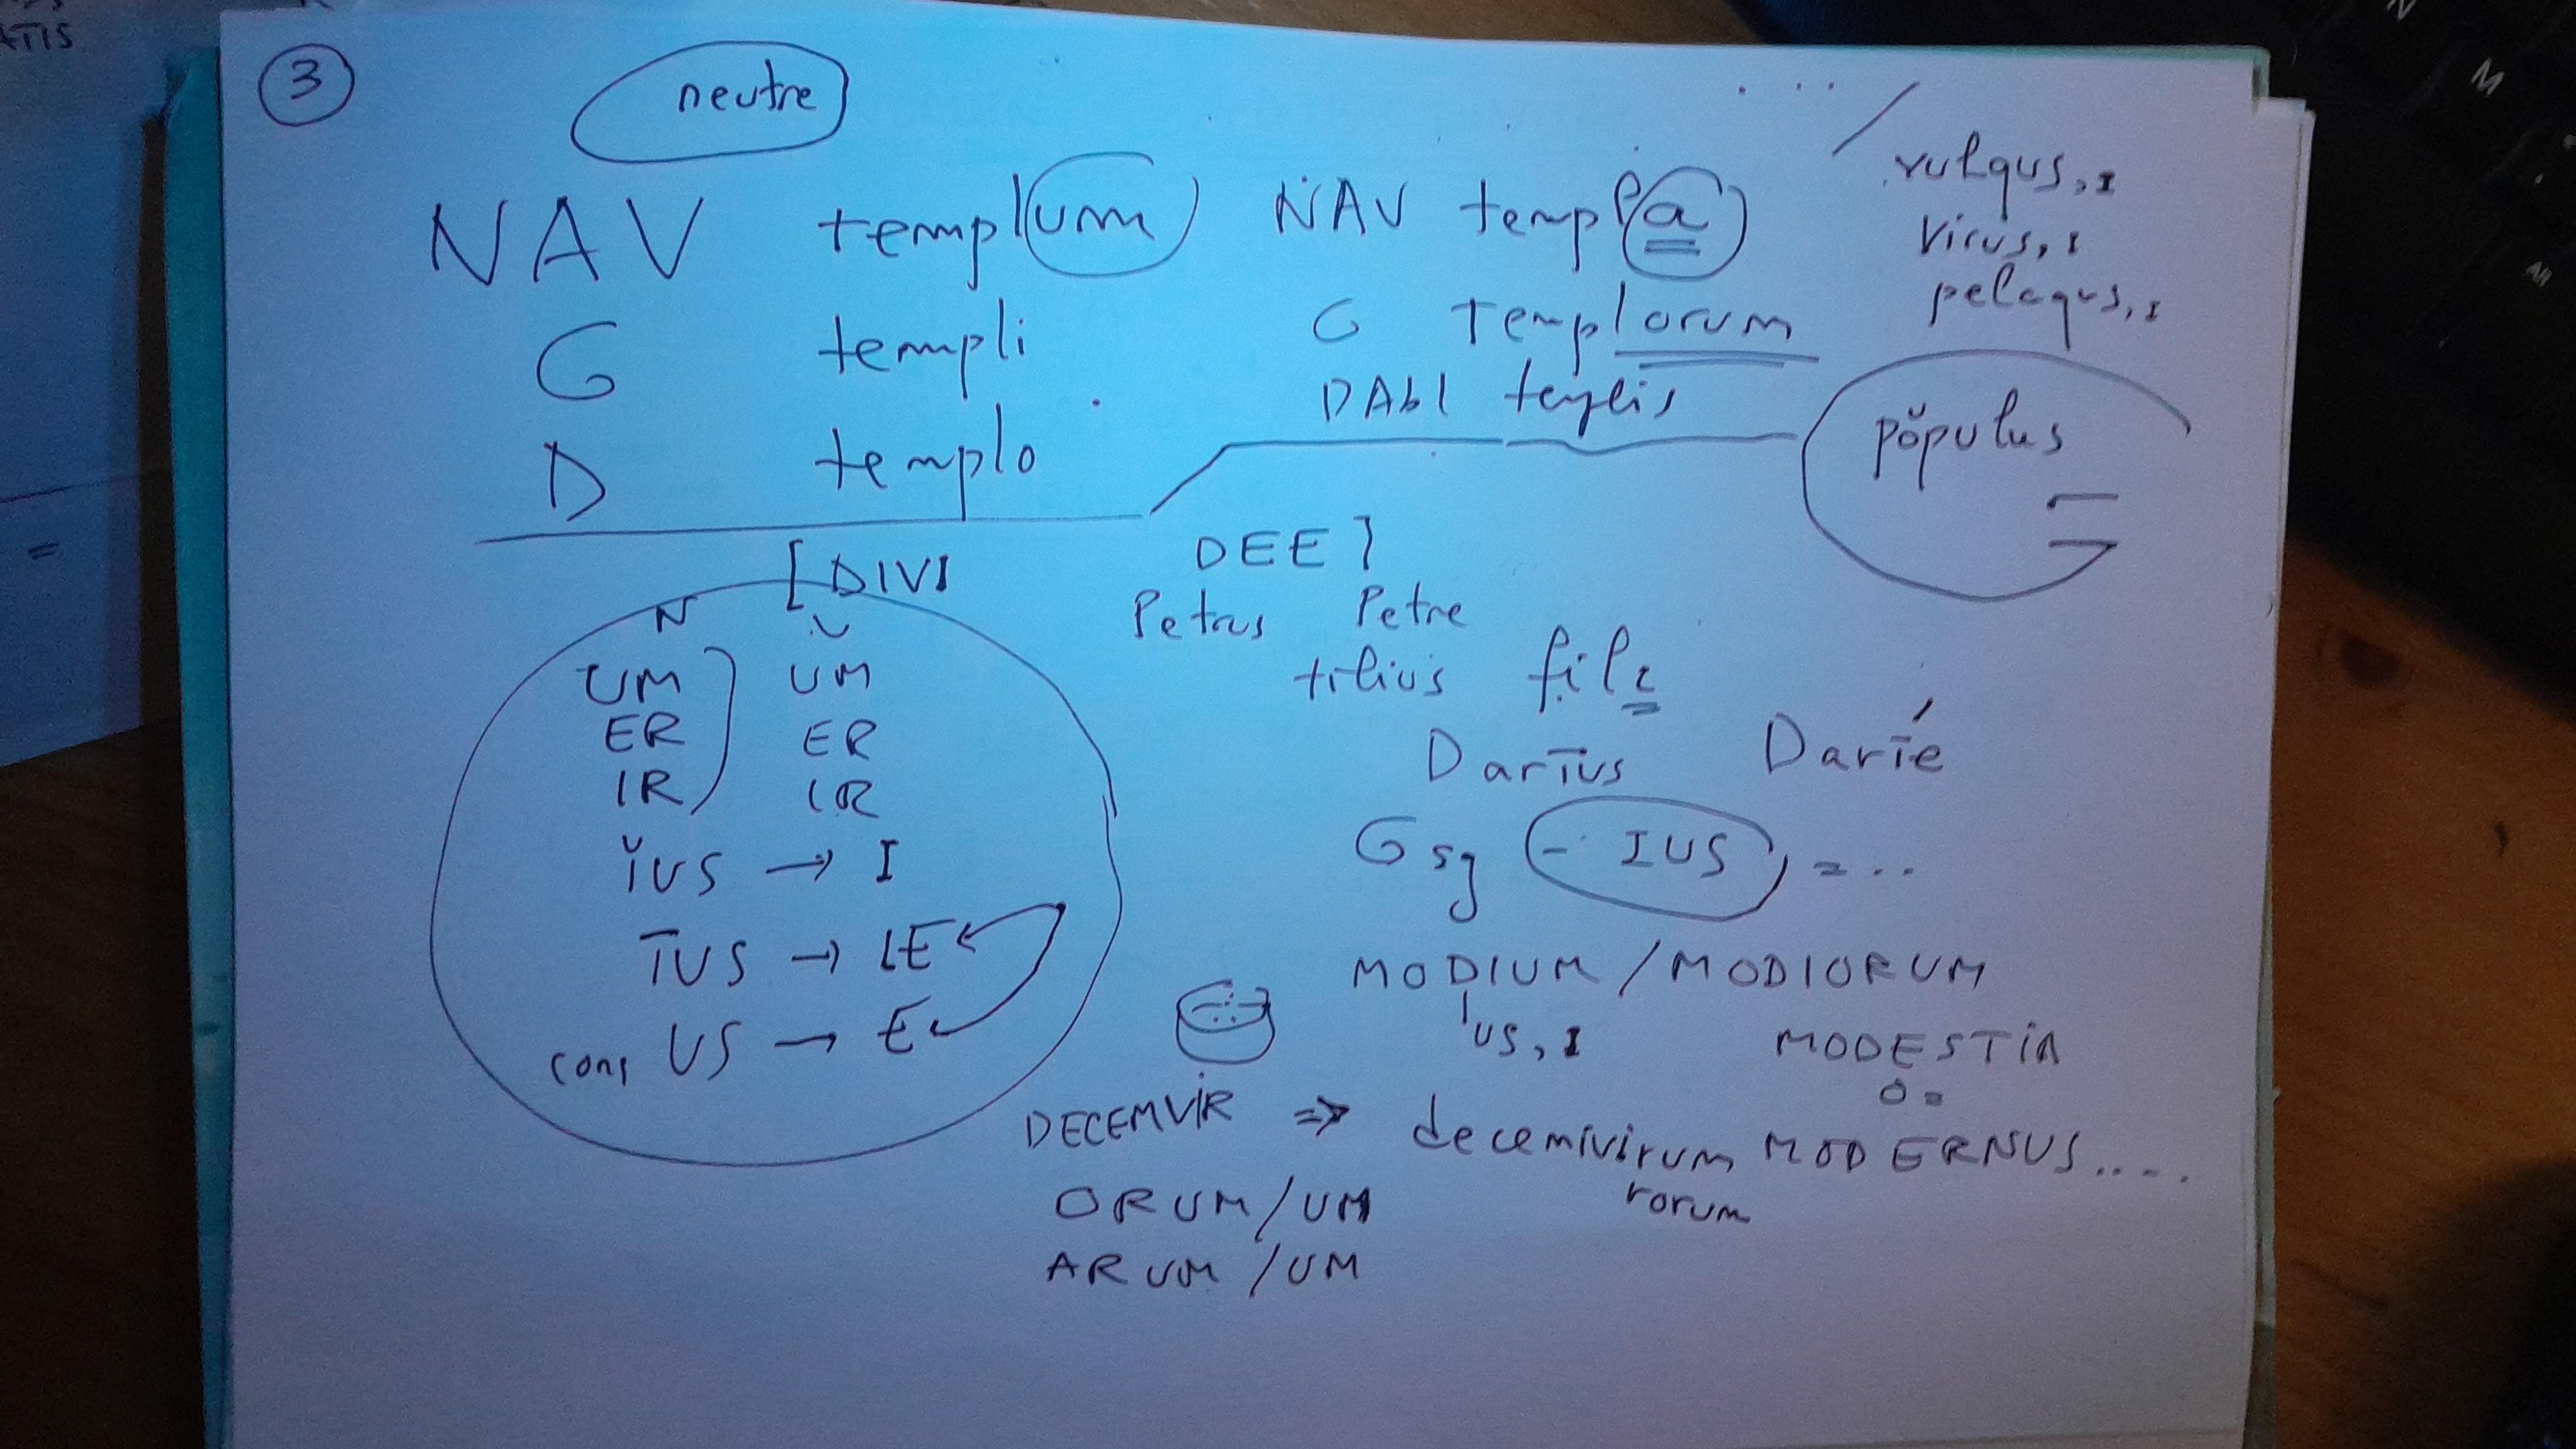 ATIS
3
neutre
NAV templum NAV templa
G templi G Templorum
D templo DAbl templis
vulgus, I
virus, I
pelagus, I
pŏpulus
[DIVI DEE]
N V
UM UM
ER ER
IR IR
ĬUS → I
ĪUS → IE
cons US → E
Petrus Petre
filius fili
Darīus Darīe
G sg - IUS = ...
MODIUM / MODIORUM
US, I
MODESTIA
DECEMVIR ⇒ decemivirum MODERNUS....
rorum
ORUM / UM
ARUM / UM
N
M